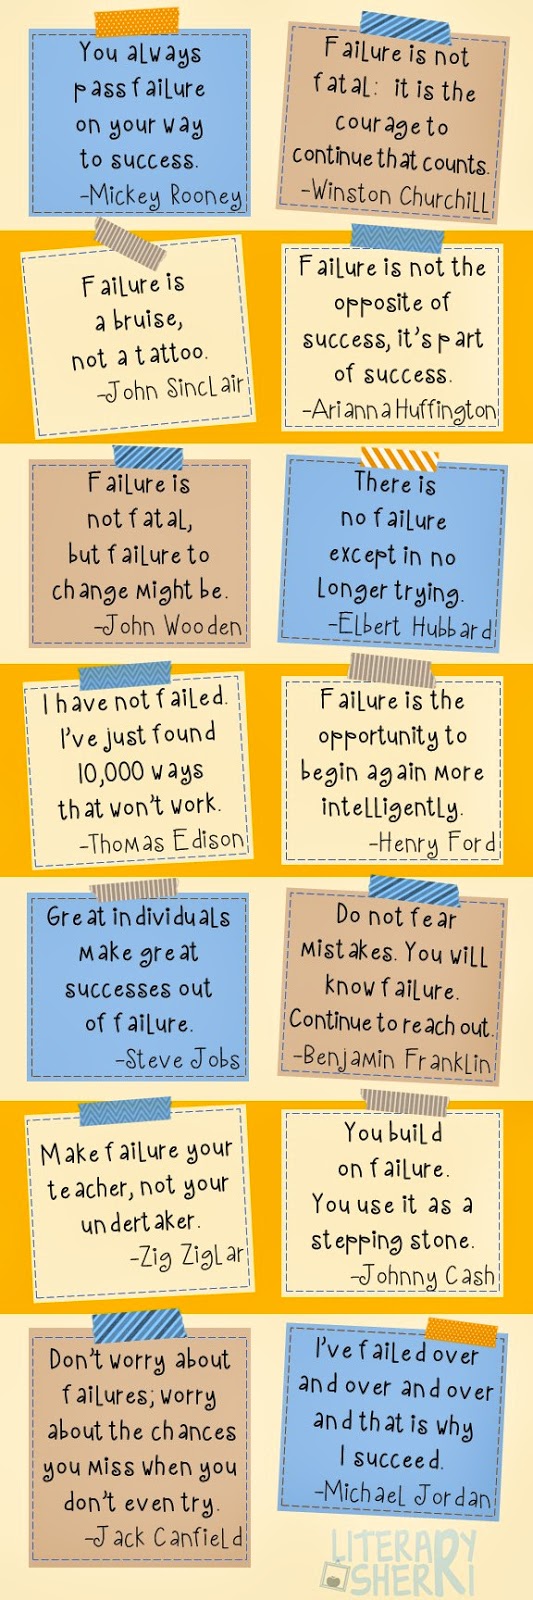 You always
pass failure
on your way
to success.
-Mickey Rooney
Failure is not
fatal: it is the
courage to
continue that counts.
-Winston Churchill
Failure is
a bruise,
not a tattoo.
-John Sinclair
Failure is not the
opposite of
success, it's part
of success.
-Arianna Huffington
Failure is
not fatal,
but failure to
change might be.
-John Wooden
There is
no failure
except in no
longer trying.
-Elbert Hubbard
I have not failed.
I've just found
10,000 ways
that won't work.
-Thomas Edison
Failure is the
opportunity to
begin again more
intelligently.
-Henry Ford
Great individuals
make great
successes out
of failure.
-Steve Jobs
Do not fear
mistakes. You will
know failure.
Continue to reach out.
-Benjamin Franklin
Make failure your
teacher, not your
undertaker.
-Zig Ziglar
You build
on failure.
You use it as a
stepping stone.
-Johnny Cash
Don't worry about
failures; worry
about the chances
you miss when you
don't even try.
-Jack Canfield
I've failed over
and over and over
and that is why
I succeed.
-Michael Jordan
LITERARY
SHERRI